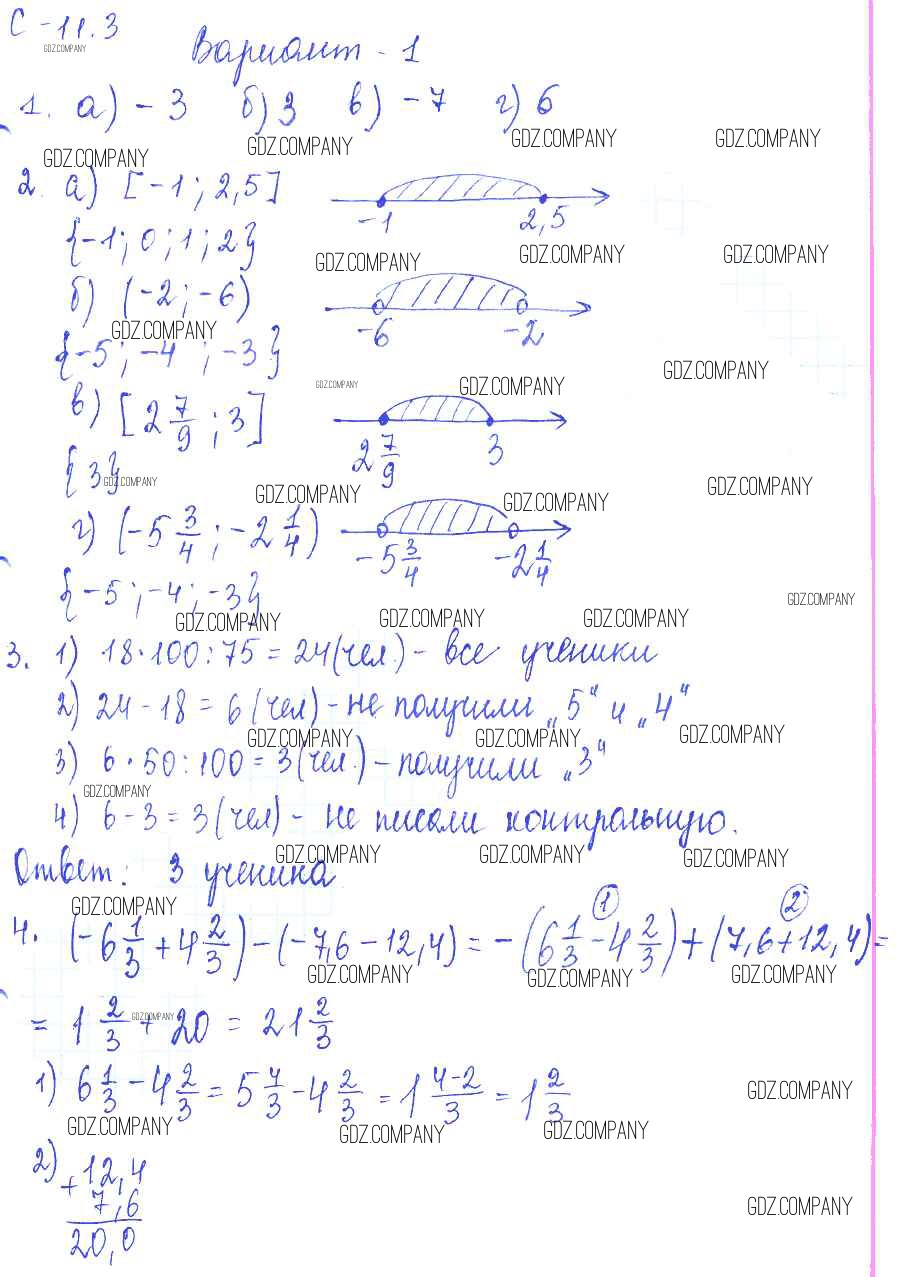 С -11.3
GDZ.COMPANY
Вариант - 1
1. а) - 3 б) 3 в) -7 г) 6
GDZ.COMPANY GDZ.COMPANY GDZ.COMPANY GDZ.COMPANY
2. а) [-1 ; 2,5]
-1 2,5
{-1; 0; 1; 2}
GDZ.COMPANY GDZ.COMPANY GDZ.COMPANY
б) (-2 ; -6)
-6 -2
GDZ.COMPANY
{-5; -4 ; -3}
GDZ.COMPANY GDZ.COMPANY GDZ.COMPANY
в) [2 7/9 ; 3]
2 7/9 3
{3}
GDZ.COMPANY GDZ.COMPANY GDZ.COMPANY GDZ.COMPANY
г) (-5 3/4 ; -2 1/4)
-5 3/4 -2 1/4
{-5 ; -4 ; -3}
GDZ.COMPANY
GDZ.COMPANY GDZ.COMPANY GDZ.COMPANY
3. 1) 18·100:75 = 24(чел.) - все ученики
2) 24 - 18 = 6 (чел) - не получили „5“ и „4“
GDZ.COMPANY GDZ.COMPANY GDZ.COMPANY
3) 6 · 50 : 100 = 3 (чел.) - получили „3“
GDZ.COMPANY
4) 6 - 3 = 3 (чел) - не писали контрольную.
GDZ.COMPANY GDZ.COMPANY GDZ.COMPANY
Ответ: 3 ученика
GDZ.COMPANY
1 2
4. (-6 1/3 + 4 2/3) - (-7,6 - 12,4) = -(6 1/3 - 4 2/3) + (7,6 + 12,4) =
GDZ.COMPANY GDZ.COMPANY GDZ.COMPANY
= 1 2/3 + 20 = 21 2/3
GDZ.COMPANY
1) 6 1/3 - 4 2/3 = 5 4/3 - 4 2/3 = 1 4-2/3 = 1 2/3
GDZ.COMPANY
GDZ.COMPANY GDZ.COMPANY GDZ.COMPANY
2) + 12,4
7,6
GDZ.COMPANY
20,0